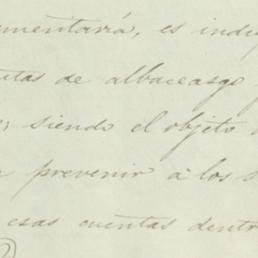 amentaria, es indis
tas de albaceasgo
; siendo el objeto
prevenir á los s
esas cuentas dentr